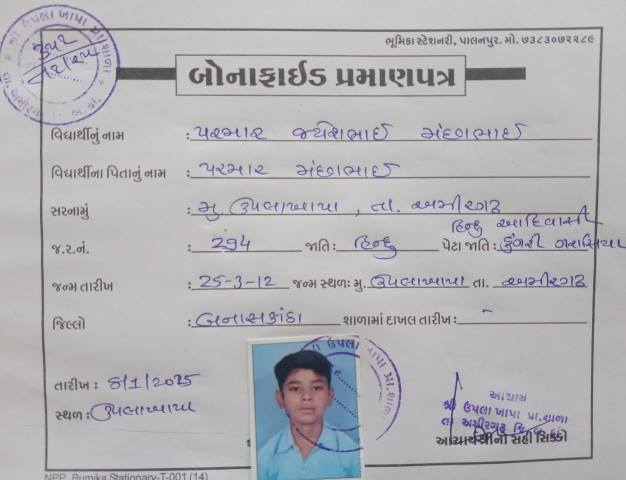 શ્રી ઉપલા ખાપા પ્રા.શાળા
ભૂમિકા સ્ટેશનરી, પાલનપુર. મો. ૭૩૮૩૦૭૨૨૮૯
બોનાફાઈડ પ્રમાણપત્ર
વિદ્યાર્થીનું નામ : પરમાર જયેશભાઈ મંછાભાઈ
વિદ્યાર્થીના પિતાનું નામ : પરમાર મંછાભાઈ
સરનામું : મુ. ઉપલાખાપા, તા. અમીરગઢ
હિન્દુ આદિવાસી
જ.ર.નં. : 294 જાતિ : હિન્દુ પેટા જાતિ : ડુંગરી ગરાસિયા
જન્મ તારીખ : 25-3-12 જન્મ સ્થળઃ મુ. ઉપલાખાપા તા. અમીરગઢ
જિલ્લો : બનાસકાંઠા શાળામાં દાખલ તારીખ : -
ઉપલા ખાપા પ્રા.શાળા
તારીખ : 8/1/2025
સ્થળ : ઉપલાખાપા
આચાર્ય
શ્રી ઉપલા ખાપા પ્રા.શાળા
તા અમીરગઢ
આચાર્યશ્રીનો સહી સિક્કો
NPP Bumika Stationary-T-001 (14)